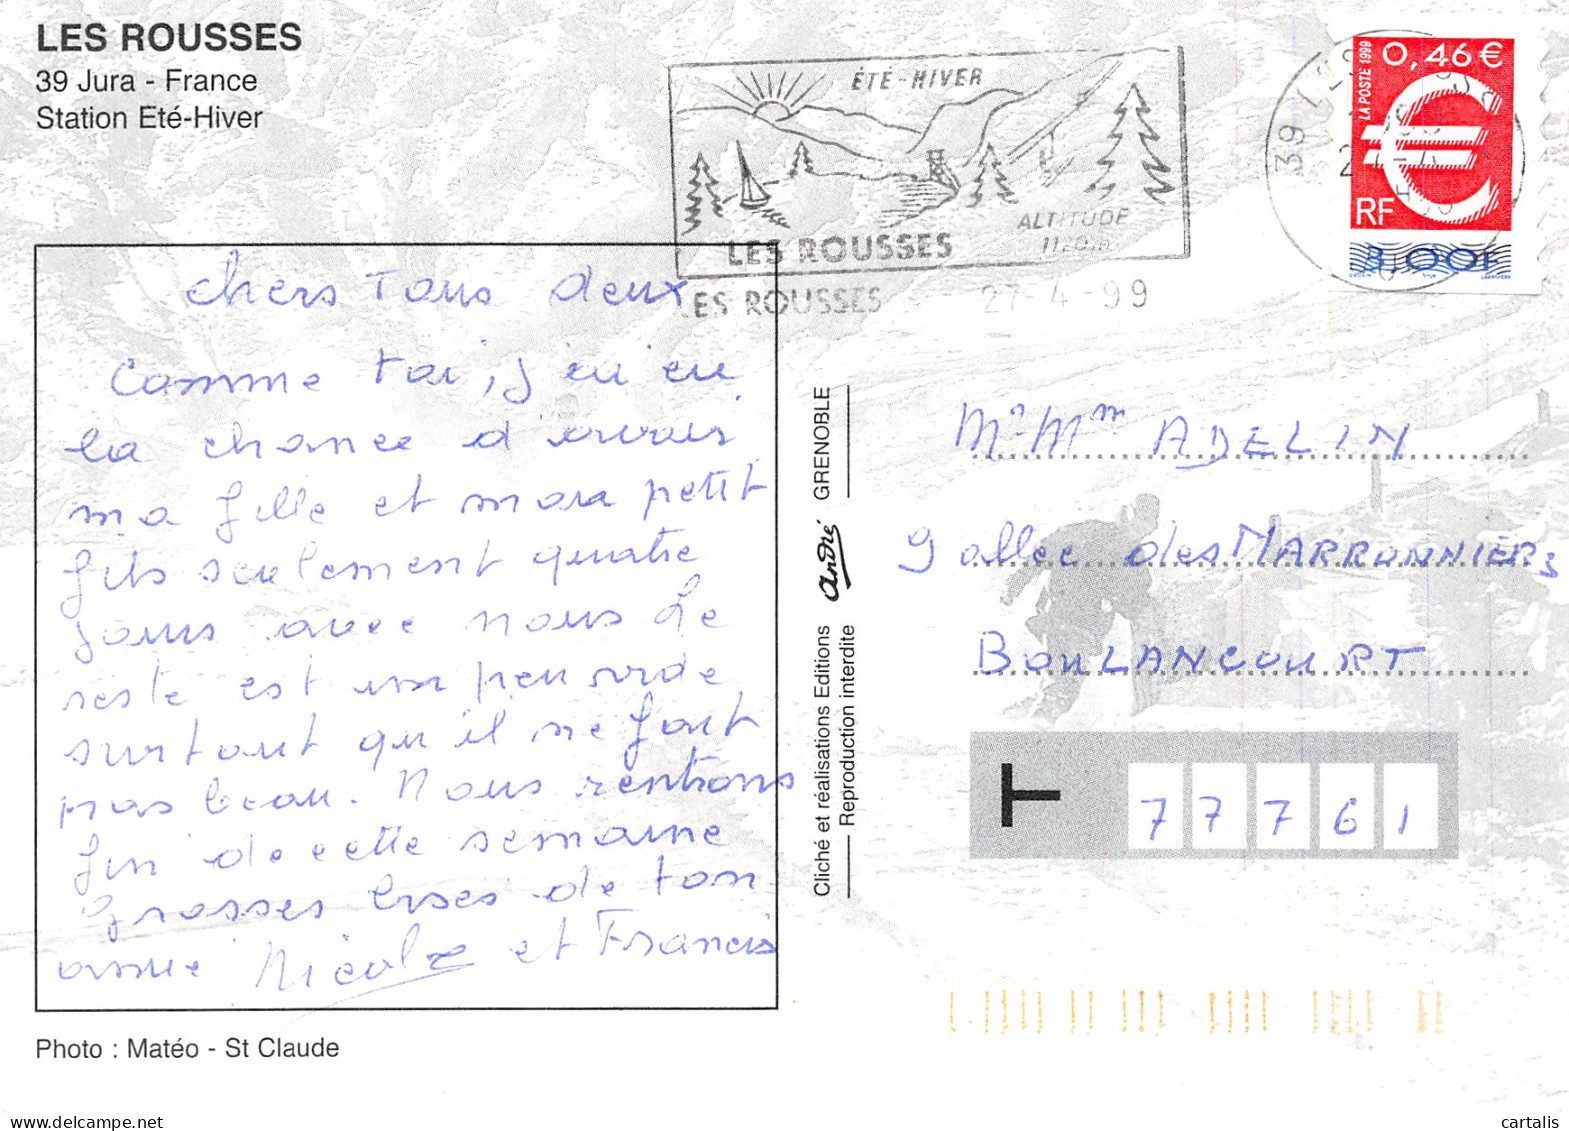 LES ROUSSES
39 Jura - France
Station Eté-Hiver
ÉTÉ-HIVER
ALTITUDE
LES ROUSSES
ES ROUSSES
27-4-99
39
LA POSTE 1999
0,46 €
RF
3,00F
chers Tous deux
Comme toi, j'ai eu
la chance d'avoir
ma fille et mon petit
fils seulement quatre
jours avec nous Le
reste est un peu vide
surtout qu'il ne fait
pas beau. Nous rentrons
fin de cette semaine
Grosses bises de ton
amie Nicole et Francis
Photo : Matéo - St Claude
Cliché et réalisations Editions André GRENOBLE
Reproduction interdite
Mr Mme ADELIN
9 allee des MARRONNIERS
BOULANCOURT
T
77761
cartalis